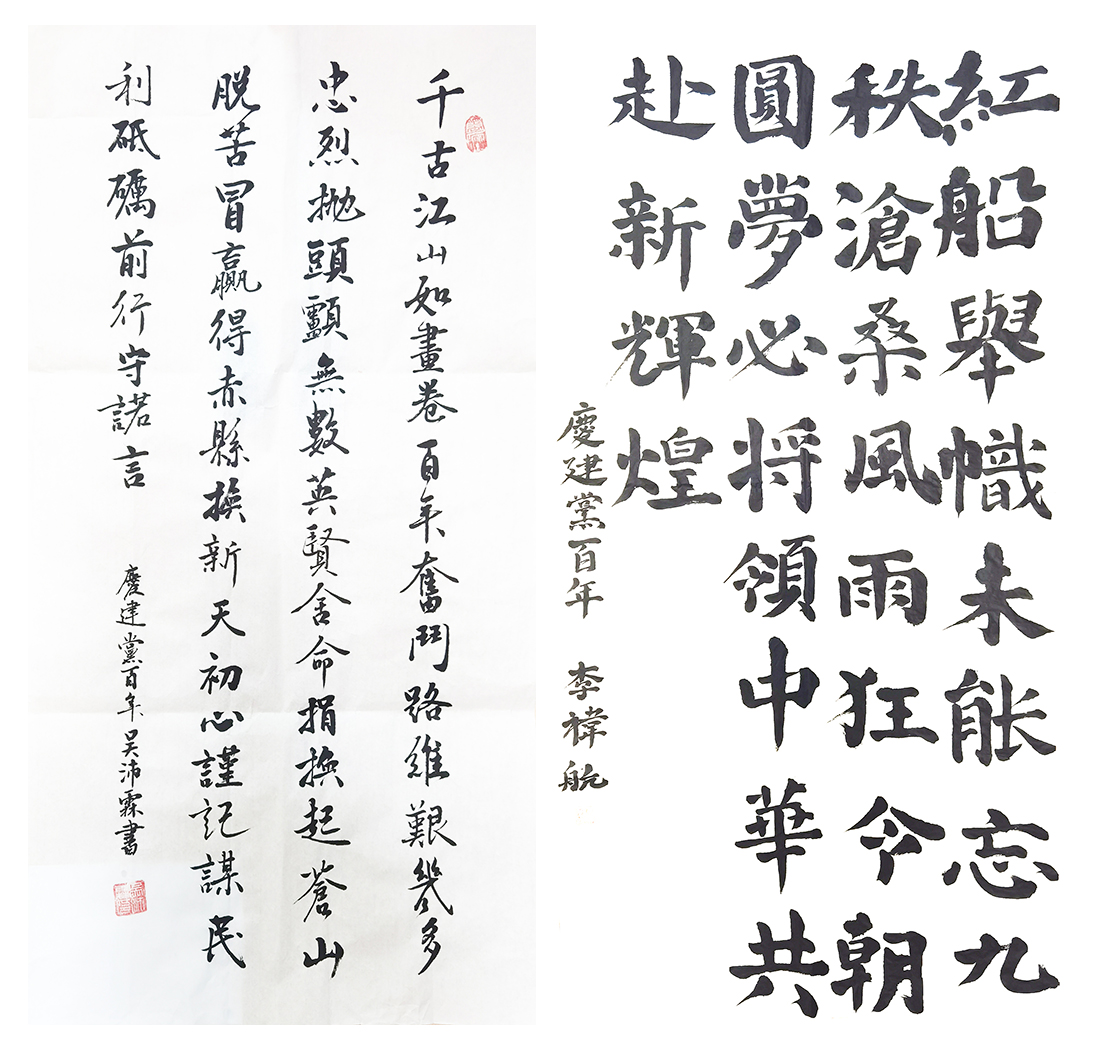 紅船舉幟未能忘九
秩滄桑風雨狂今朝
圓夢必将領中華共
赴新輝煌
慶建黨百年 李禕航
千古江山如畫卷百年奮鬥路維艱幾多
忠烈拋頭顱無數英賢舍命捐換起蒼山
脫苦冒贏得赤縣換新天初心謹記謀民
利砥礪前行守諾言
慶建黨百年吳沛霖書